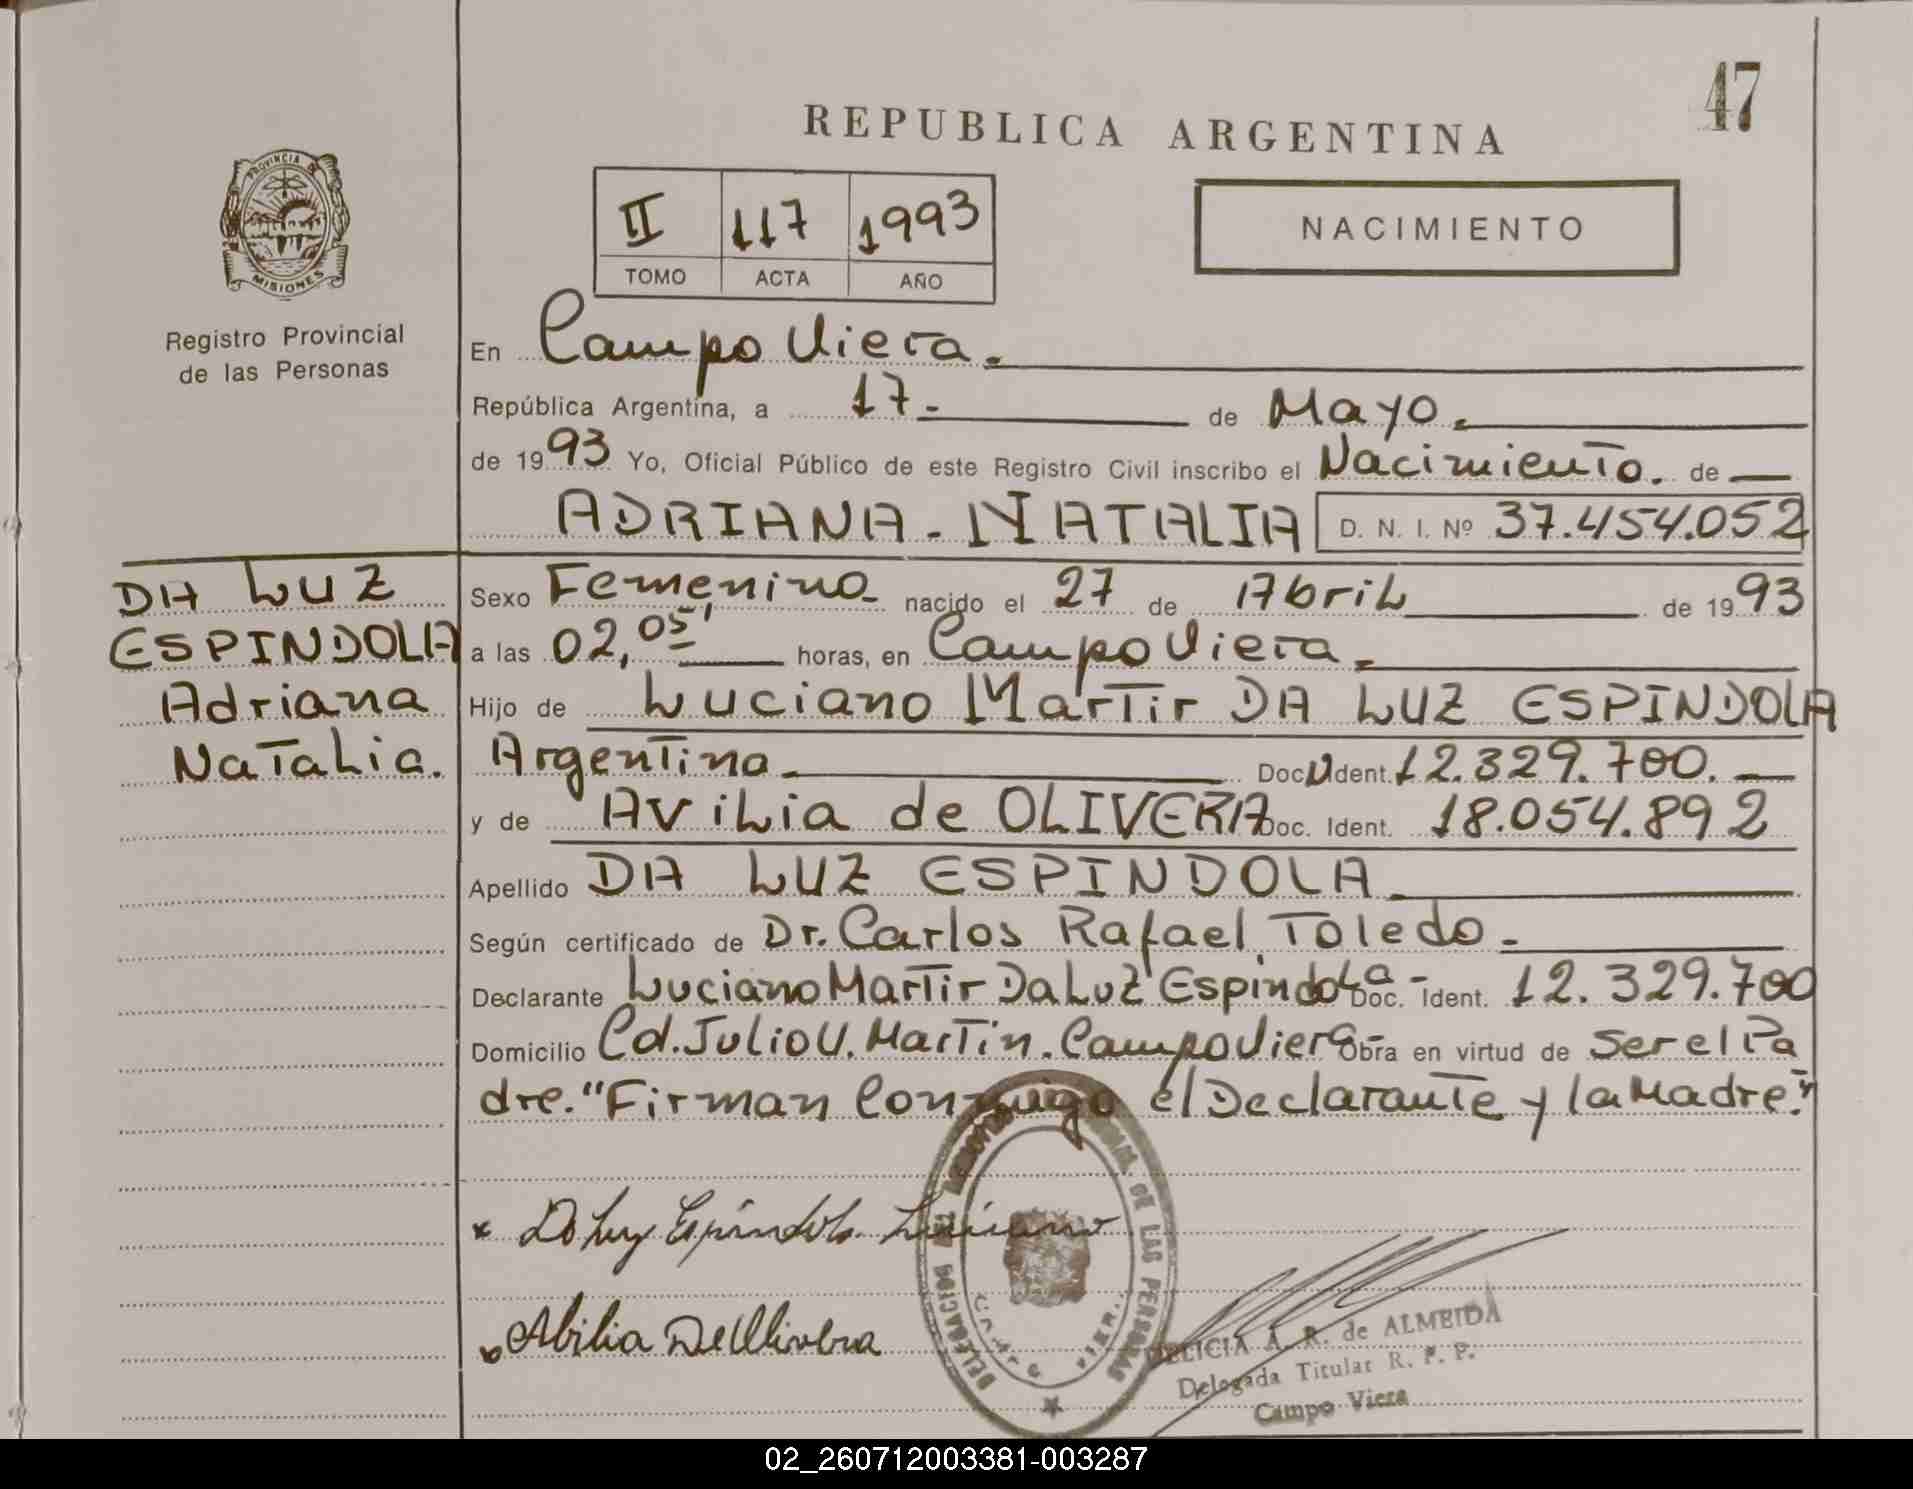 47
REPUBLICA ARGENTINA
PROVINCIA DE
MISIONES
Registro Provincial
de las Personas
II 117 1993
TOMO ACTA AÑO
NACIMIENTO
En Campo Viera.
República Argentina, a 17- de Mayo.
de 1993 Yo, Oficial Público de este Registro Civil inscribo el Nacimiento. de
ADRIANA - NATALIA D. N. I. Nº 37.454.052
DA LUZ
ESPINDOLA
Adriana
Natalia.
Sexo Femenino nacido el 27 de Abril de 1993
a las 02,05' horas, en Campo Viera.
Hijo de Luciano Martir DA LUZ ESPINDOLA
Argentino Doc. Ident. 12.329.700.
y de AviLia de OLIVERA Doc. Ident. 18.054.892
Apellido DA LUZ ESPINDOLA
Según certificado de Dr. Carlos Rafael Toledo -
Declarante Luciano Martir Da Luz Espindola - Doc. Ident. 12.329.700
Domicilio Cd. Julio U. Martin. Campo Viera Obra en virtud de Ser el Pa
dre. "Firman Conmigo el Declarante y la Madre."
x Da Luz Espindola Luciano
Abilia De Olivera
DELEGACION DEL REGISTRO PROVINCIAL DE LAS PERSONAS
CAMPO VIERA
DELICIA A. R. de ALMEIDA
Delegada Titular R. P. P.
Campo Viera
02_260712003381-003287